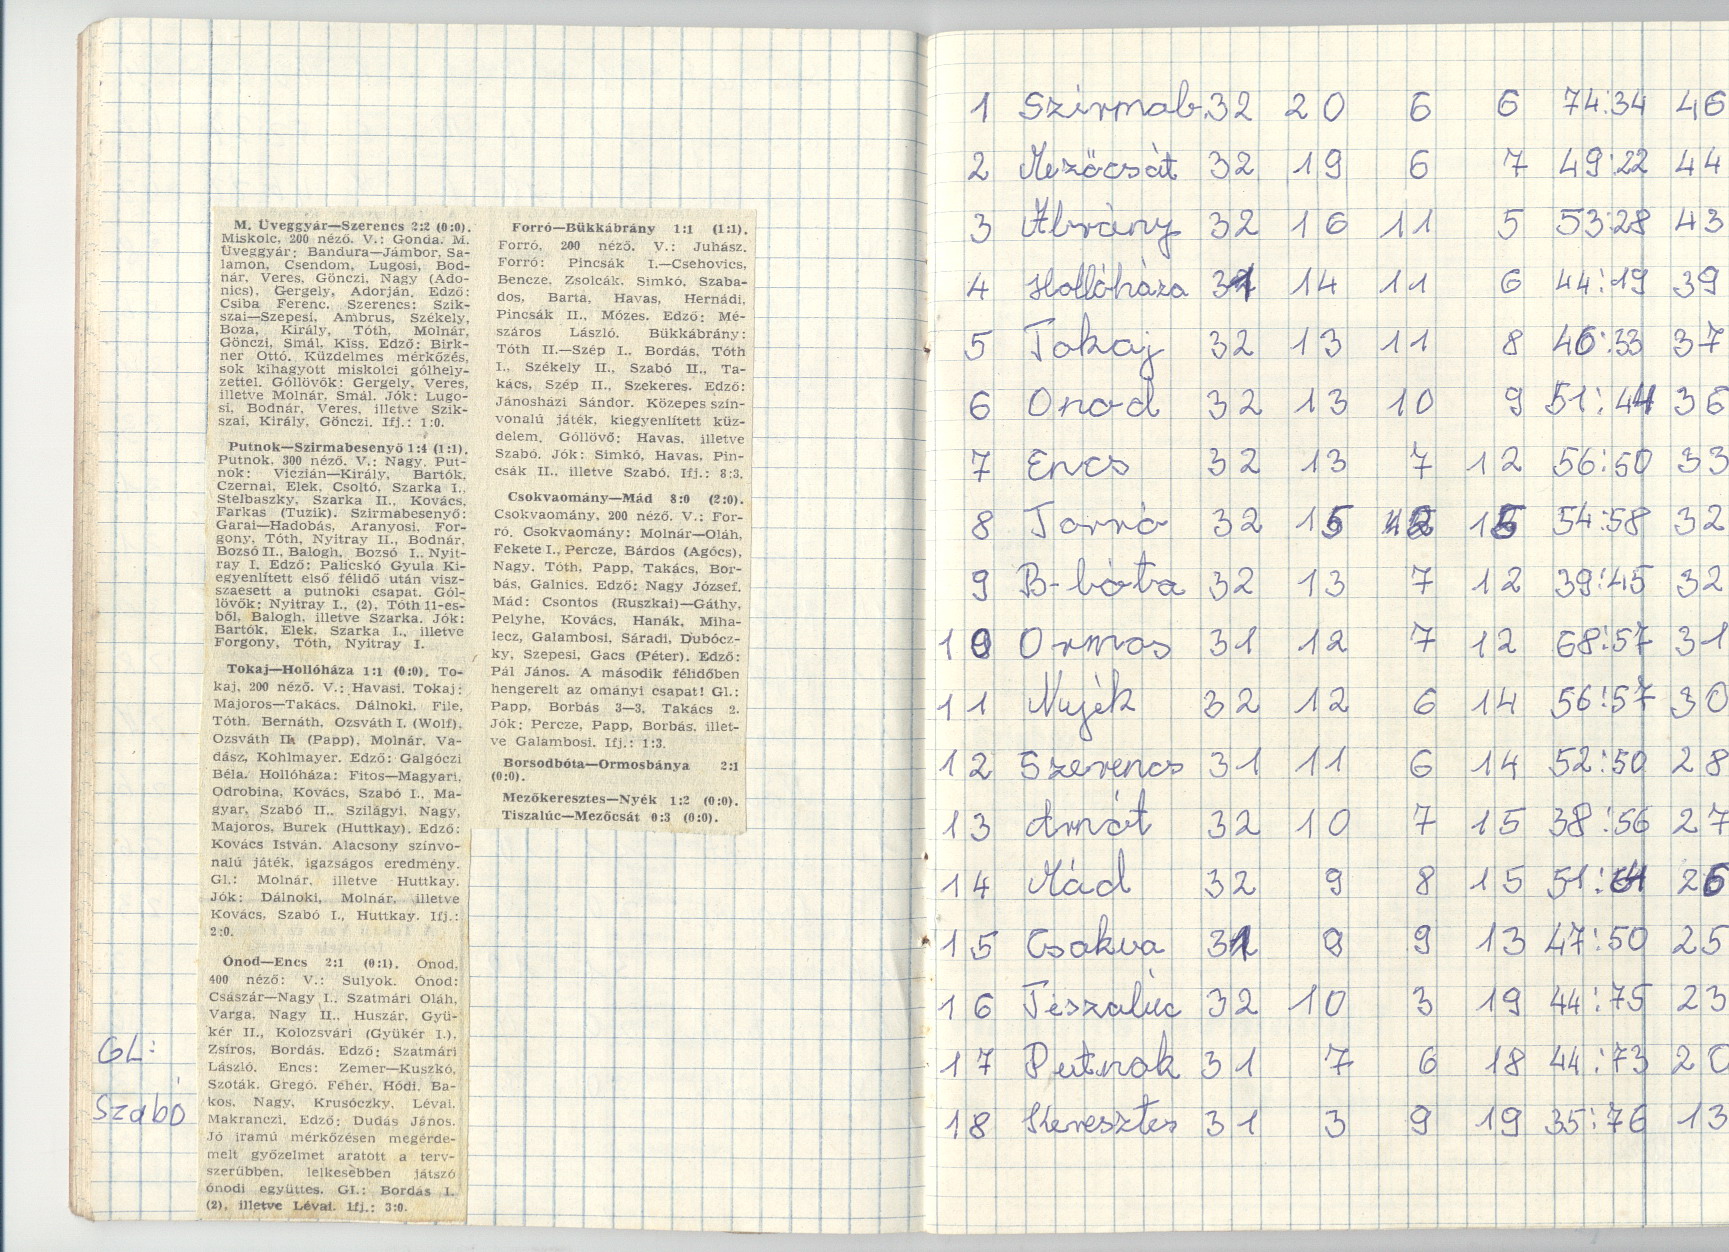 M. Üveggyár—Szerencs 2:2 (0:0).
Miskolc, 200 néző. V.: Gonda. M.
Üveggyár: Bandura—Jámbor, Sa-
lamon, Csendom, Lugosi, Bod-
nár, Veres, Gönczi, Nagy (Ado-
nics), Gergely, Adorján. Edző:
Csiba Ferenc. Szerencs: Szik-
szai—Szepesi, Ambrus, Székely,
Boza, Király, Tóth, Molnár,
Gönczi, Smál, Kiss. Edző: Birk-
ner Ottó. Küzdelmes mérkőzés,
sok kihagyott miskolci gólhely-
zettel. Góllövők: Gergely, Veres,
illetve Molnár, Smál. Jók: Lugo-
si, Bodnár, Veres, illetve Szik-
szai, Király, Gönczi. Ifj.: 1:0.
Putnok—Szirmabesenyő 1:4 (1:1).
Putnok, 300 néző. V.: Nagy. Put-
nok: Viczián—Király, Bartók,
Czernai, Elek, Csoltó, Szarka I.,
Stelbaszky, Szarka II., Kovács,
Farkas (Tuzik). Szirmabesenyő:
Garai—Hadobás, Aranyosi, For-
gony, Tóth, Nyitray II., Bodnár,
Bozsó II., Balogh, Bozsó I., Nyit-
ray I. Edző: Palicskó Gyula Ki-
egyenlített első félidő után visz-
szaesett a putnoki csapat. Gól-
lövők: Nyitray I., (2), Tóth 11-es-
ből, Balogh, illetve Szarka. Jók:
Bartók, Elek, Szarka I., illetve
Forgony, Tóth, Nyitray I.
Tokaj—Hollóháza 1:1 (0:0). To-
kaj, 200 néző. V.: Havasi. Tokaj:
Majoros—Takács, Dálnoki, File,
Tóth, Bernáth, Ozsváth I. (Wolf),
Ozsváth II. (Papp), Molnár, Va-
dász, Kohlmayer. Edző: Galgóczi
Béla. Hollóháza: Fitos—Magyari,
Odrobina, Kovács, Szabó I., Ma-
gyar, Szabó II., Szilágyi, Nagy,
Majoros, Burek (Huttkay). Edző:
Kovács István. Alacsony színvo-
nalú játék, igazságos eredmény.
Gl.: Molnár, illetve Huttkay.
Jók: Dálnoki, Molnár, illetve
Kovács, Szabó I., Huttkay. Ifj.:
2:0.
Ónod—Encs 2:1 (0:1). Ónod,
400 néző: V.: Sulyok. Ónod:
Császár—Nagy I., Szatmári Oláh,
Varga, Nagy II., Huszár, Gyü-
kér II., Kolozsvári (Gyükér I.),
Zsíros, Bordás. Edző: Szatmári
László. Encs: Zemer—Kuszkó,
Szoták, Gregó, Fehér, Hódi, Ba-
kos, Nagy, Krusóczky, Lévai,
Makranczi. Edző: Dudás János.
Jó iramú mérkőzésen megérde-
melt győzelmet aratott a terv-
szerűbben, lelkesebben játszó
ónodi együttes. Gl.: Bordás I.
(2), illetve Lévai. Ifj.: 3:0.
GL:
Szabó
Forró—Bükkábrány 1:1 (1:1).
Forró, 200 néző. V.: Juhász.
Forró: Pincsák I.—Csehovics,
Bencze, Zsolcák, Simkó, Szaba-
dos, Barta, Havas, Hernádi,
Pincsák II., Mózes. Edző: Mé-
száros László. Bükkábrány:
Tóth II.—Szép I., Bordás, Tóth
I., Székely II., Szabó II., Ta-
kács, Szép II., Szekeres. Edző:
Jánosházi Sándor. Közepes szín-
vonalú játék, kiegyenlített küz-
delem. Góllövő: Havas, illetve
Szabó. Jók: Simkó, Havas, Pin-
csák II., illetve Szabó. Ifj.: 8:3.
Csokvaomány—Mád 8:0 (2:0).
Csokvaomány, 200 néző. V.: For-
ró. Csokvaomány: Molnár—Oláh,
Fekete I., Percze, Bárdos (Agócs),
Nagy, Tóth, Papp, Takács, Bor-
bás, Galnics. Edző: Nagy József.
Mád: Csontos (Ruszkai)—Gáthy,
Pelyhe, Kovács, Hanák, Miha-
lecz, Galambosi, Sáradi, Dubócz-
ky, Szepesi, Gacs (Péter). Edző:
Pál János. A második félidőben
hengerelt az ományi csapat! Gl.:
Papp, Borbás 3—3, Takács 2.
Jók: Percze, Papp, Borbás, illet-
ve Galambosi. Ifj.: 1:3.
Borsodbóta—Ormosbánya 2:1
(0:0).
Mezőkeresztes—Nyék 1:2 (0:0).
Tiszalúc—Mezőcsát 0:3 (0:0).
1 Szirmab. 32 20 6 6 74:34 46
2 Mezőcsát 32 19 6 7 49:22 44
3 Ábrány 32 16 11 5 53:28 43
4 Hollóháza 31 14 11 6 44:19 39
5 Tokaj 32 13 11 8 46:33 37
6 Ónod 32 13 10 9 51:44 36
7 Encs 32 13 7 12 56:50 33
8 Forró 32 15 15 54:58 32
9 B-bóta 32 13 7 12 39:45 32
10 Ormos 31 12 7 12 68:57 31
11 Nyék 32 12 6 14 56:57 30
12 Szerencs 31 11 6 14 52:50 28
13 Arnót 32 10 7 15 38:56 27
14 Mád 32 9 8 15 51:64 26
15 Csokva 31 9 13 47:50 25
16 Tiszalúc 32 10 3 19 44:75 23
17 Putnok 31 7 6 18 44:73 20
18 Keresztes 31 3 9 19 35:76 13